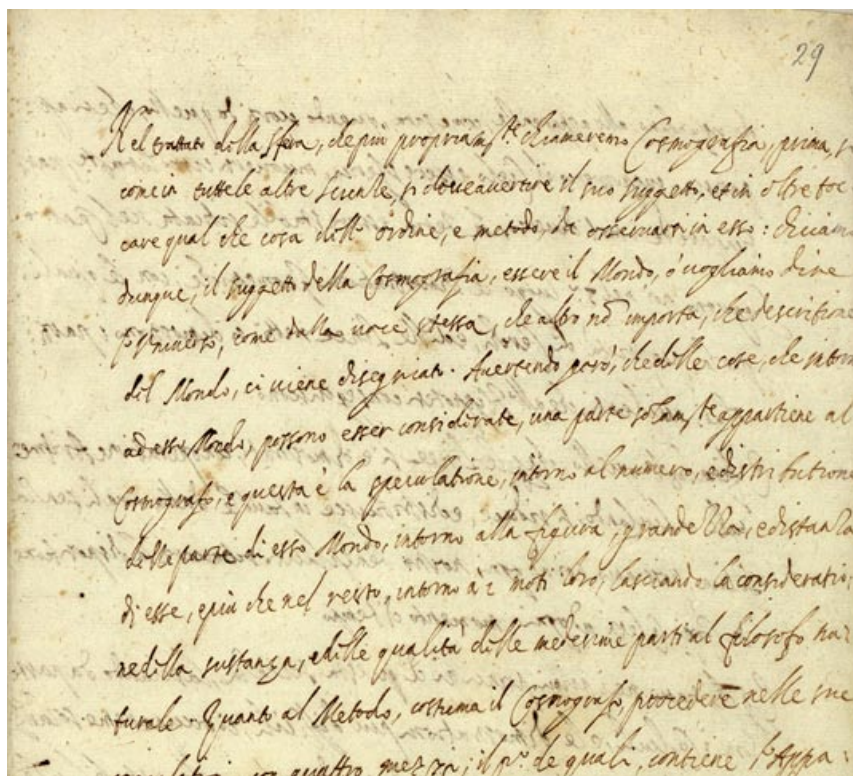 29
Nel trattato della sfera, che più propriam.te chiameremo Cosmografia, prima, si
come in tutte le altre scienze, si deve avertire il suo suggetto, et in oltre toc
care qual che cosa dell' ordine, e metodo, da osservarsi in esso: diciamo
dunque, il suggetto della Cosmografia, essere il Mondo, ò vogliamo dire
l'Universo, come dalla voce stessa, che altro nō importa, che descrittione
del Mondo, ci viene disegnato. Avertendo però, che delle cose, che intorno
ad esso Mondo, possono esser considerate, una parte solam.te appartiene al
Cosmografo, e questa è la speculatione, intorno al numero, e distributione
delle parte di esso Mondo, intorno alla figura, grandezza, e distanza
di esse, e più che nel resto, intorno a i moti loro, lasciando la consideratio,
ne della sustanza, e delle qualità delle medesime parti al filosofo na:
turale. Quanto al Metodo, costuma il Cosmografo, procedere nelle sue
con quattro mezza; il p.o de quali, contiene l'Appa: